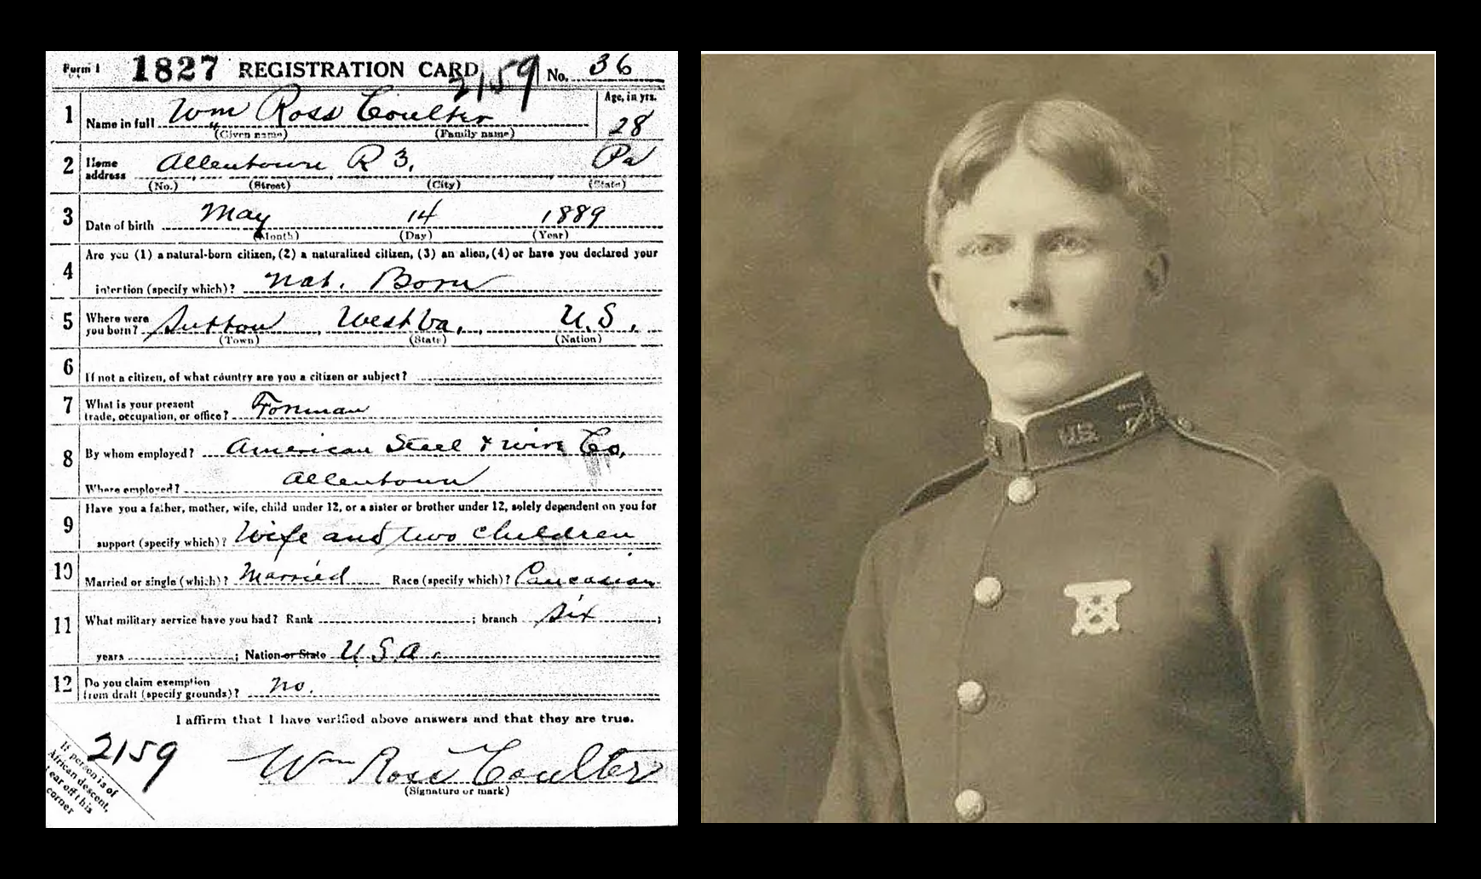 Form 1 1827 REGISTRATION CARD 2159 No. 36
1 Name in full Wm Ross Coulter Age, in yrs. 28
(Given name) (Family name)
2 Home address Allentown R 3. Pa
(No.) (Street) (City) (State)
3 Date of birth May 14 1889
(Month) (Day) (Year)
4 Are you (1) a natural-born citizen, (2) a naturalized citizen, (3) an alien, (4) or have you declared your
intention (specify which)? Nat. Born
5 Where were you born? Sutton, West Va., U.S.
(Town) (State) (Nation)
6 If not a citizen, of what country are you a citizen or subject?
7 What is your present trade, occupation, or office? Forman
8 By whom employed? American Steel & Wire Co.
Where employed? Allentown
9 Have you a father, mother, wife, child under 12, or a sister or brother under 12, solely dependent on you for
support (specify which)? Wife and two children
10 Married or single (which)? Married Race (specify which)? Caucasian
11 What military service have you had? Rank ; branch six ;
years ; Nation or State U.S.A.
12 Do you claim exemption from draft (specify grounds)? No.
I affirm that I have verified above answers and that they are true.
2159 Wm Ross Coulter
(Signature or mark)
If person is of
African descent,
tear off this
corner
US